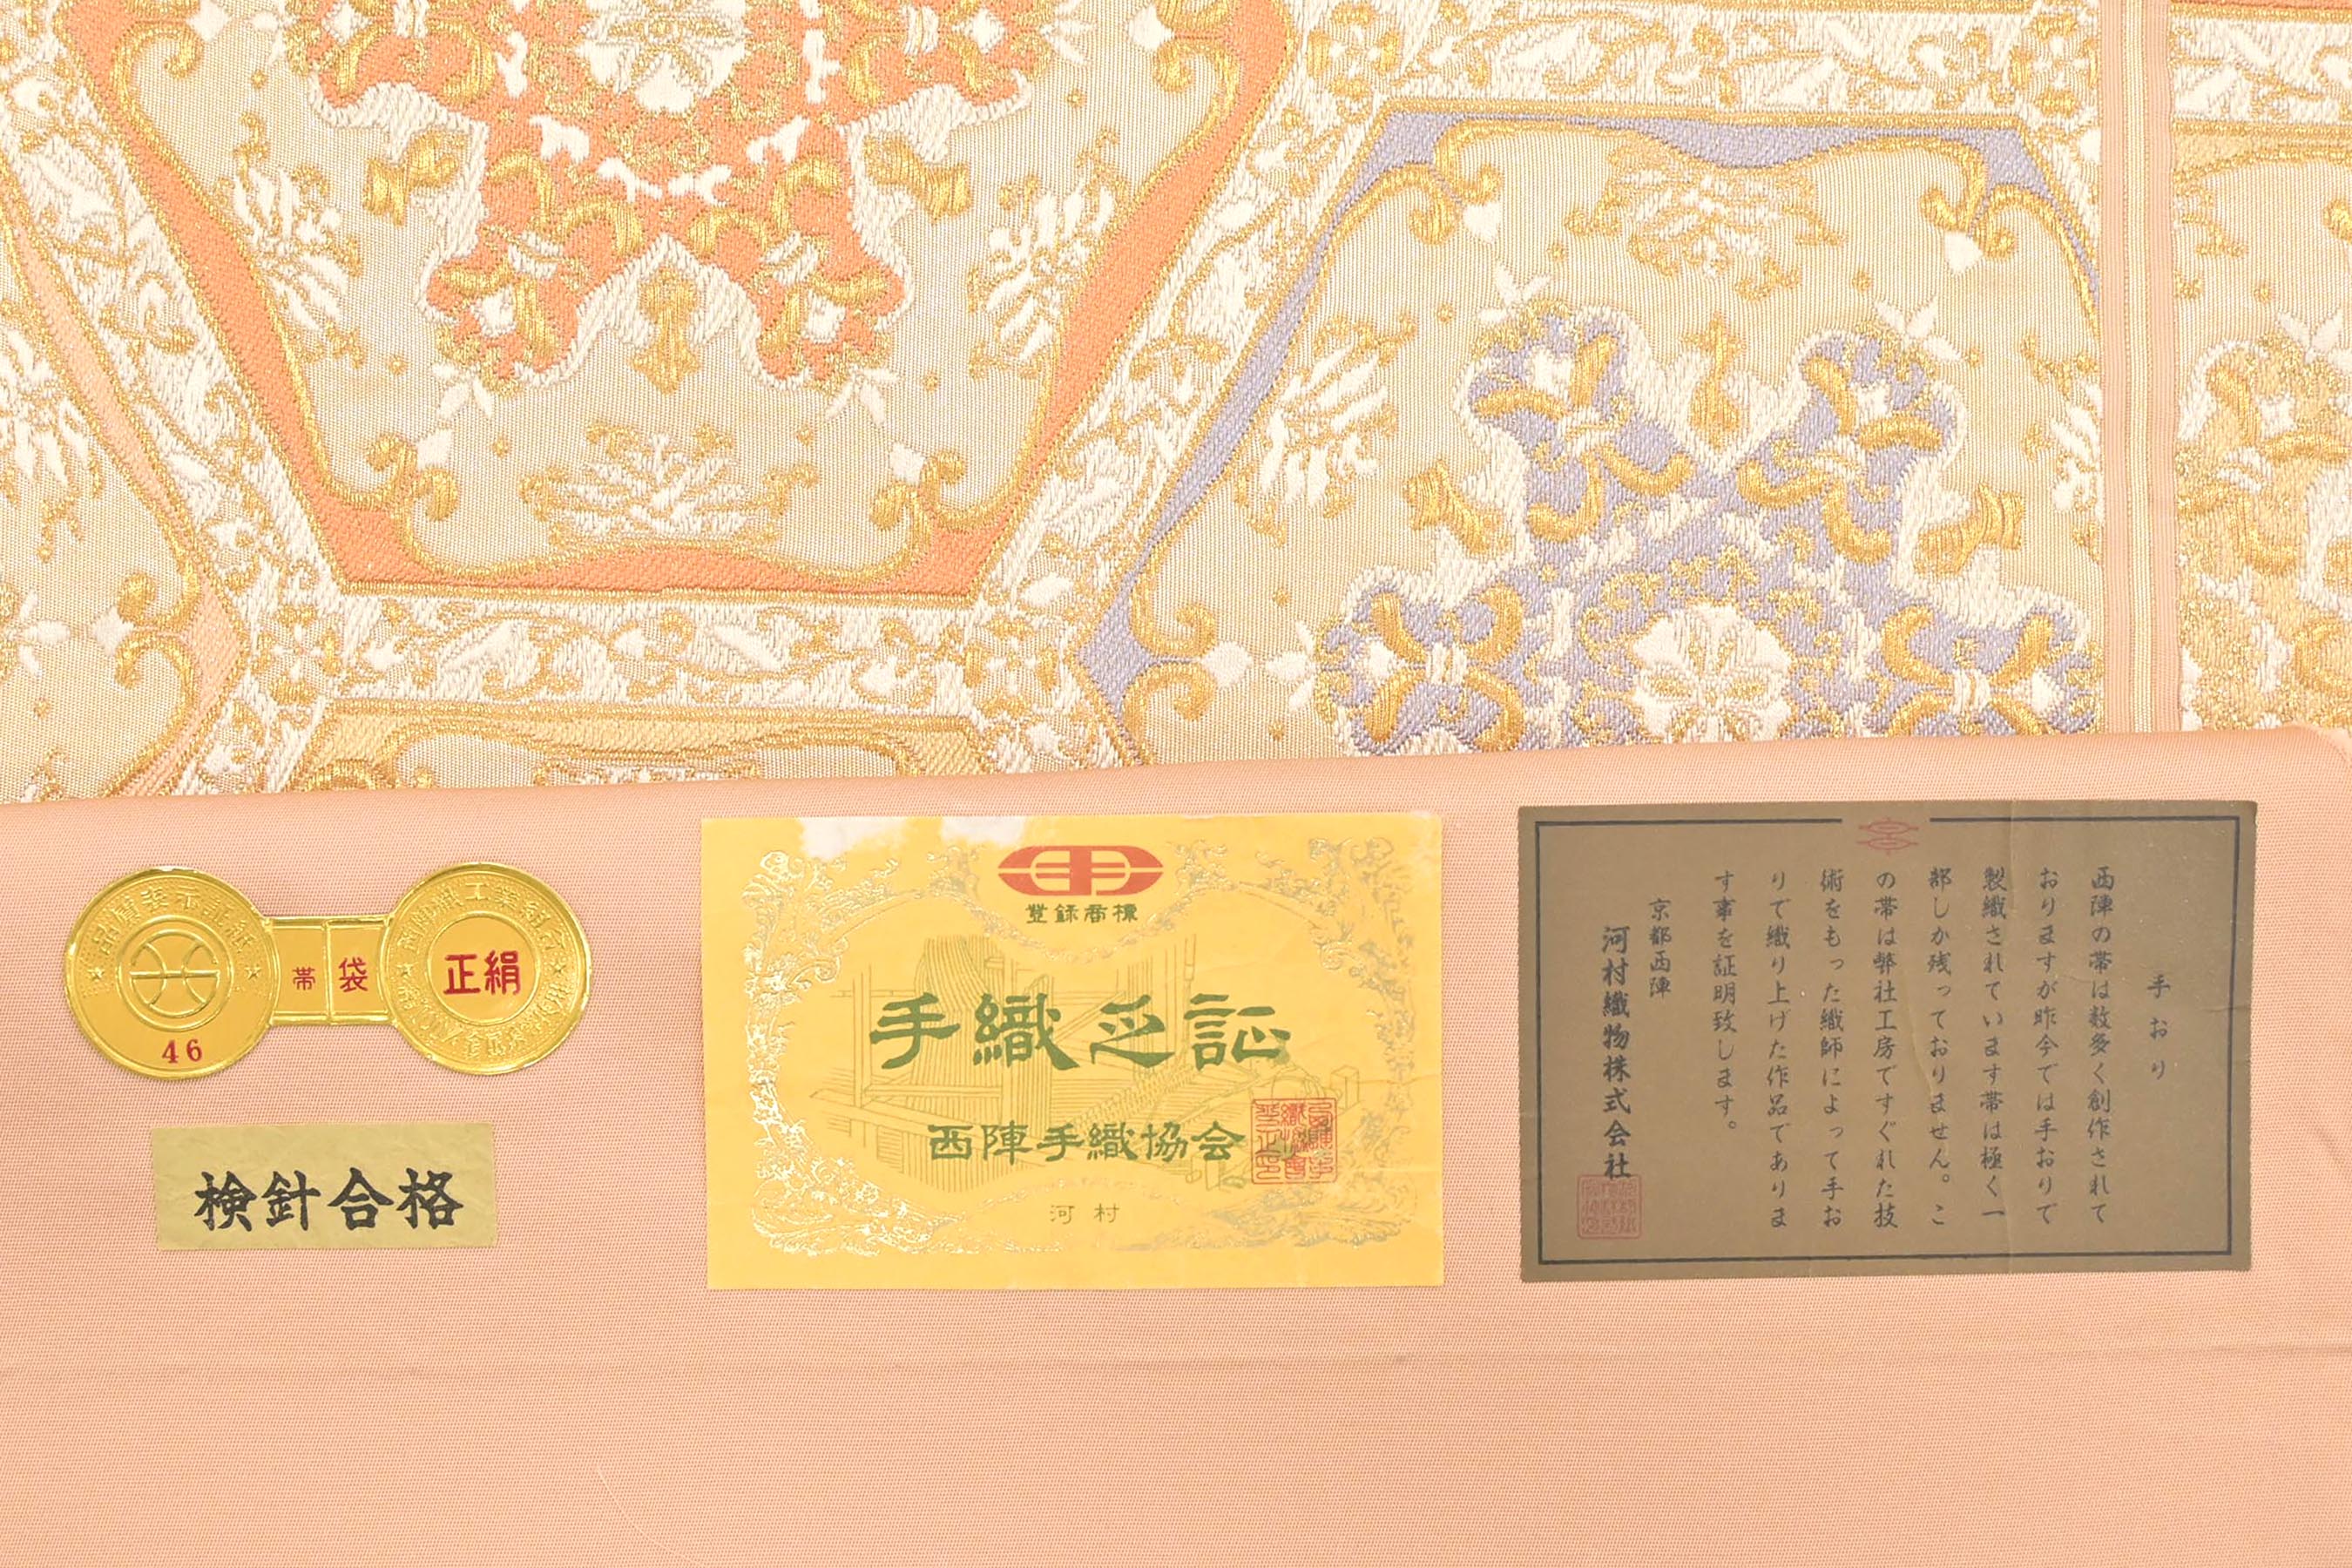 品質表示証紙
46
帯 袋
西陣織工業組合
正絹
検針合格
登録商標
手織之証
西陣手織協会
河村
手おり
西陣の帯は数多く創作されて
おりますが昨今では手おりで
製織されています帯は極く一
部しか残っておりません。こ
の帯は弊社工房ですぐれた技
術をもった織師によって手お
りで織り上げた作品でありま
す事を証明致します。
京都西陣
河村織物株式会社